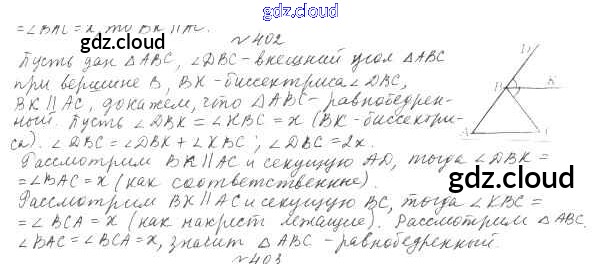 gdz.cloud
= ∠BAC = x, то BK ∥ AC.
gdz.cloud
№402
Пусть дан △ABC, ∠DBC - внешний угол △ABC
при вершине B, BK - биссектриса ∠DBC,
BK ∥ AC, докажем, что △ABC - равнобедрен-
ный. Пусть ∠DBK = ∠KBC = x (BK - биссектри-
са). ∠DBC = ∠DBK + ∠KBC; ∠DBC = 2x.
Рассмотрим BK ∥ AC и секущую AD, тогда ∠DBK =
= ∠BAC = x (как соответственные).
Рассмотрим BK ∥ AC и секущую BC, тогда ∠KBC =
= ∠BCA = x (как накрест лежащие). Рассмотрим △ABC.
∠BAC = ∠BCA = x, значит △ABC - равнобедренный.
№403
D
B
K
A
gdz.cloud
gdz.cloud